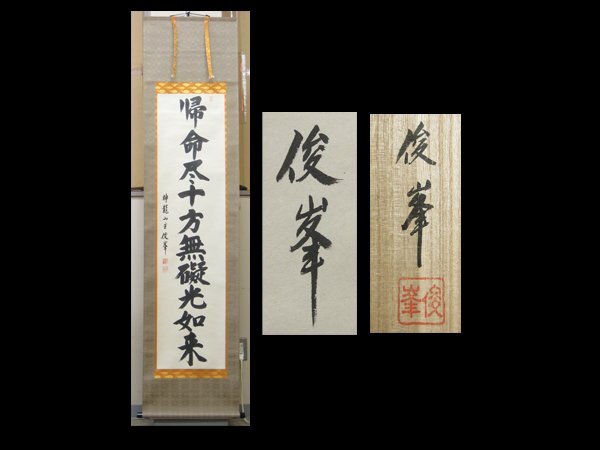 帰命尽十方無礙光如来
臥龍山主俊峯
俊峯
俊峯
俊峯